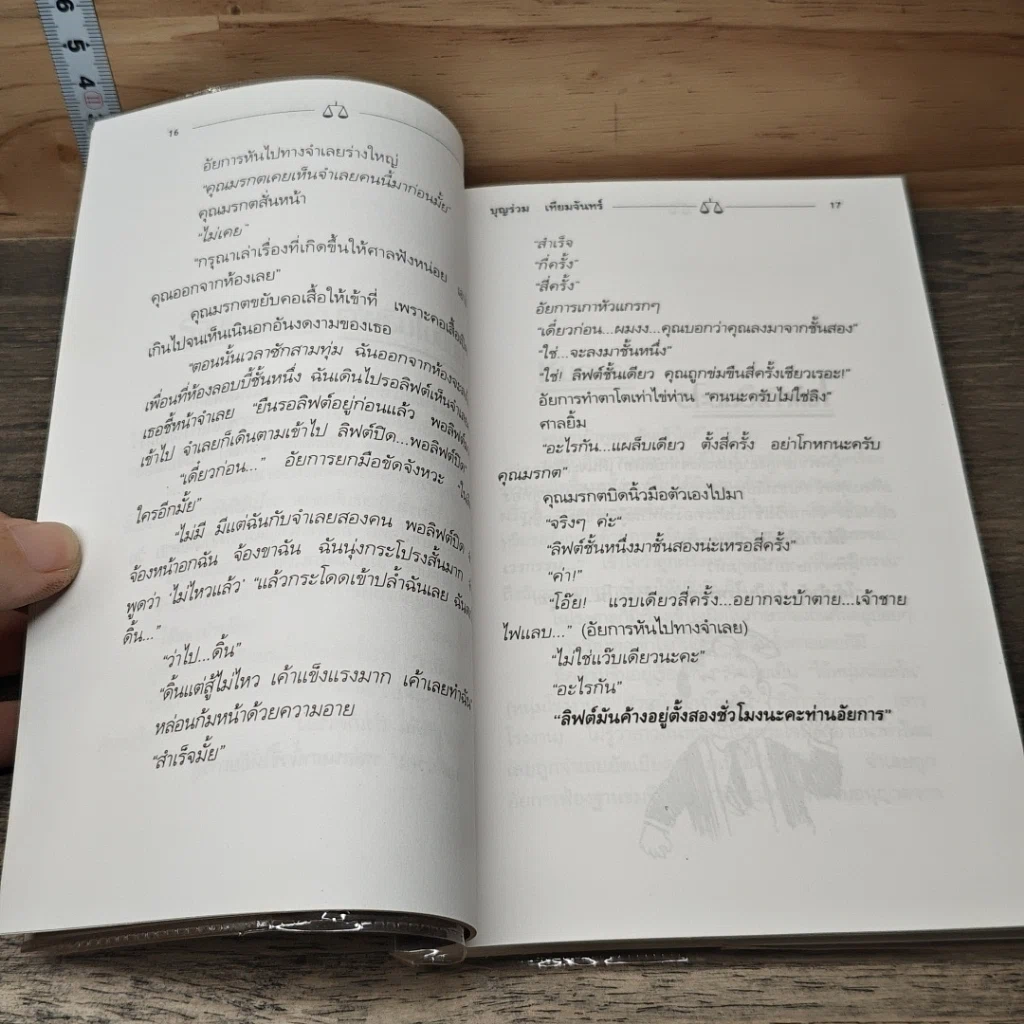 6
5
4
16
อัยการหันไปทางจำเลยร่างใหญ่
“คุณมรกตเคยเห็นจำเลยคนนี้มาก่อนมั้ย”
คุณมรกตสั่นหน้า
“ไม่เคย”
“กรุณาเล่าเรื่องที่เกิดขึ้นให้ศาลฟังหน่อย
คุณออกจากห้องเลย”
คุณมรกตขยับคอเสื้อให้เข้าที่ เพราะคอเสื้อ
เกินไปจนเห็นเนินอกอันงดงามของเธอ
“ตอนนั้นเวลาซักสามทุ่ม ฉันออกจากห้อง
เพื่อนที่ห้องลอบบี้ชั้นหนึ่ง ฉันเดินไปรอลิฟต์เห็น
เธอชี้หน้าจำเลย “ยืนรอลิฟต์อยู่ก่อนแล้ว พอลิฟต์
เข้าไป จำเลยก็เดินตามเข้าไป ลิฟต์ปิด...พอลิฟต์ปิด”
“เดี๋ยวก่อน...” อัยการยกมือขัดจังหวะ
ใครอีกมั้ย”
“ไม่มี มีแต่ฉันกับจำเลยสองคน พอลิฟต์ปิด
จ้องหน้าอกฉัน จ้องขาฉัน ฉันนุ่งกระโปรงสั้นมาก
พูดว่า ‘ไม่ไหวแล้ว’ “แล้วกระโดดเข้าปล้ำฉันเลย
ดิ้น...”
“ว่าไป...ดิ้น”
“ดิ้นแต่สู้ไม่ไหว เค้าแข็งแรงมาก เค้าเลยทำฉัน
หล่อนก้มหน้าด้วยความอาย
“สำเร็จมั้ย”
บุญร่วม เทียมจันทร์ 17
“สำเร็จ
“กี่ครั้ง”
“สี่ครั้ง”
อัยการเกาหัวแกรกๆ
“เดี๋ยวก่อน...ผมงง...คุณบอกว่าคุณลงมาจากชั้นสอง”
“ใช่...จะลงมาชั้นหนึ่ง”
“ใช่! ลิฟต์ชั้นเดียว คุณถูกข่มขืนสี่ครั้งเชียวเรอะ!”
อัยการทำตาโตเท่าไข่ห่าน “คนนะครับไม่ใช่ลิง”
ศาลยิ้ม
“อะไรกัน...แผล็บเดียว ตั้งสี่ครั้ง อย่าโกหกนะครับ
คุณมรกต”
คุณมรกตบิดนิ้วมือตัวเองไปมา
“จริงๆ ค่ะ”
“ลิฟต์ชั้นหนึ่งมาชั้นสองน่ะเหรอสี่ครั้ง”
“ค่า!”
“โอ๊ย! แวบเดียวสี่ครั้ง...อยากจะบ้าตาย...เจ้าชาย
ไฟแลบ...” (อัยการหันไปทางจำเลย)
“ไม่ใช่แว๊บเดียวนะคะ”
“อะไรกัน”
“ลิฟต์มันค้างอยู่ตั้งสองชั่วโมงนะคะท่านอัยการ”